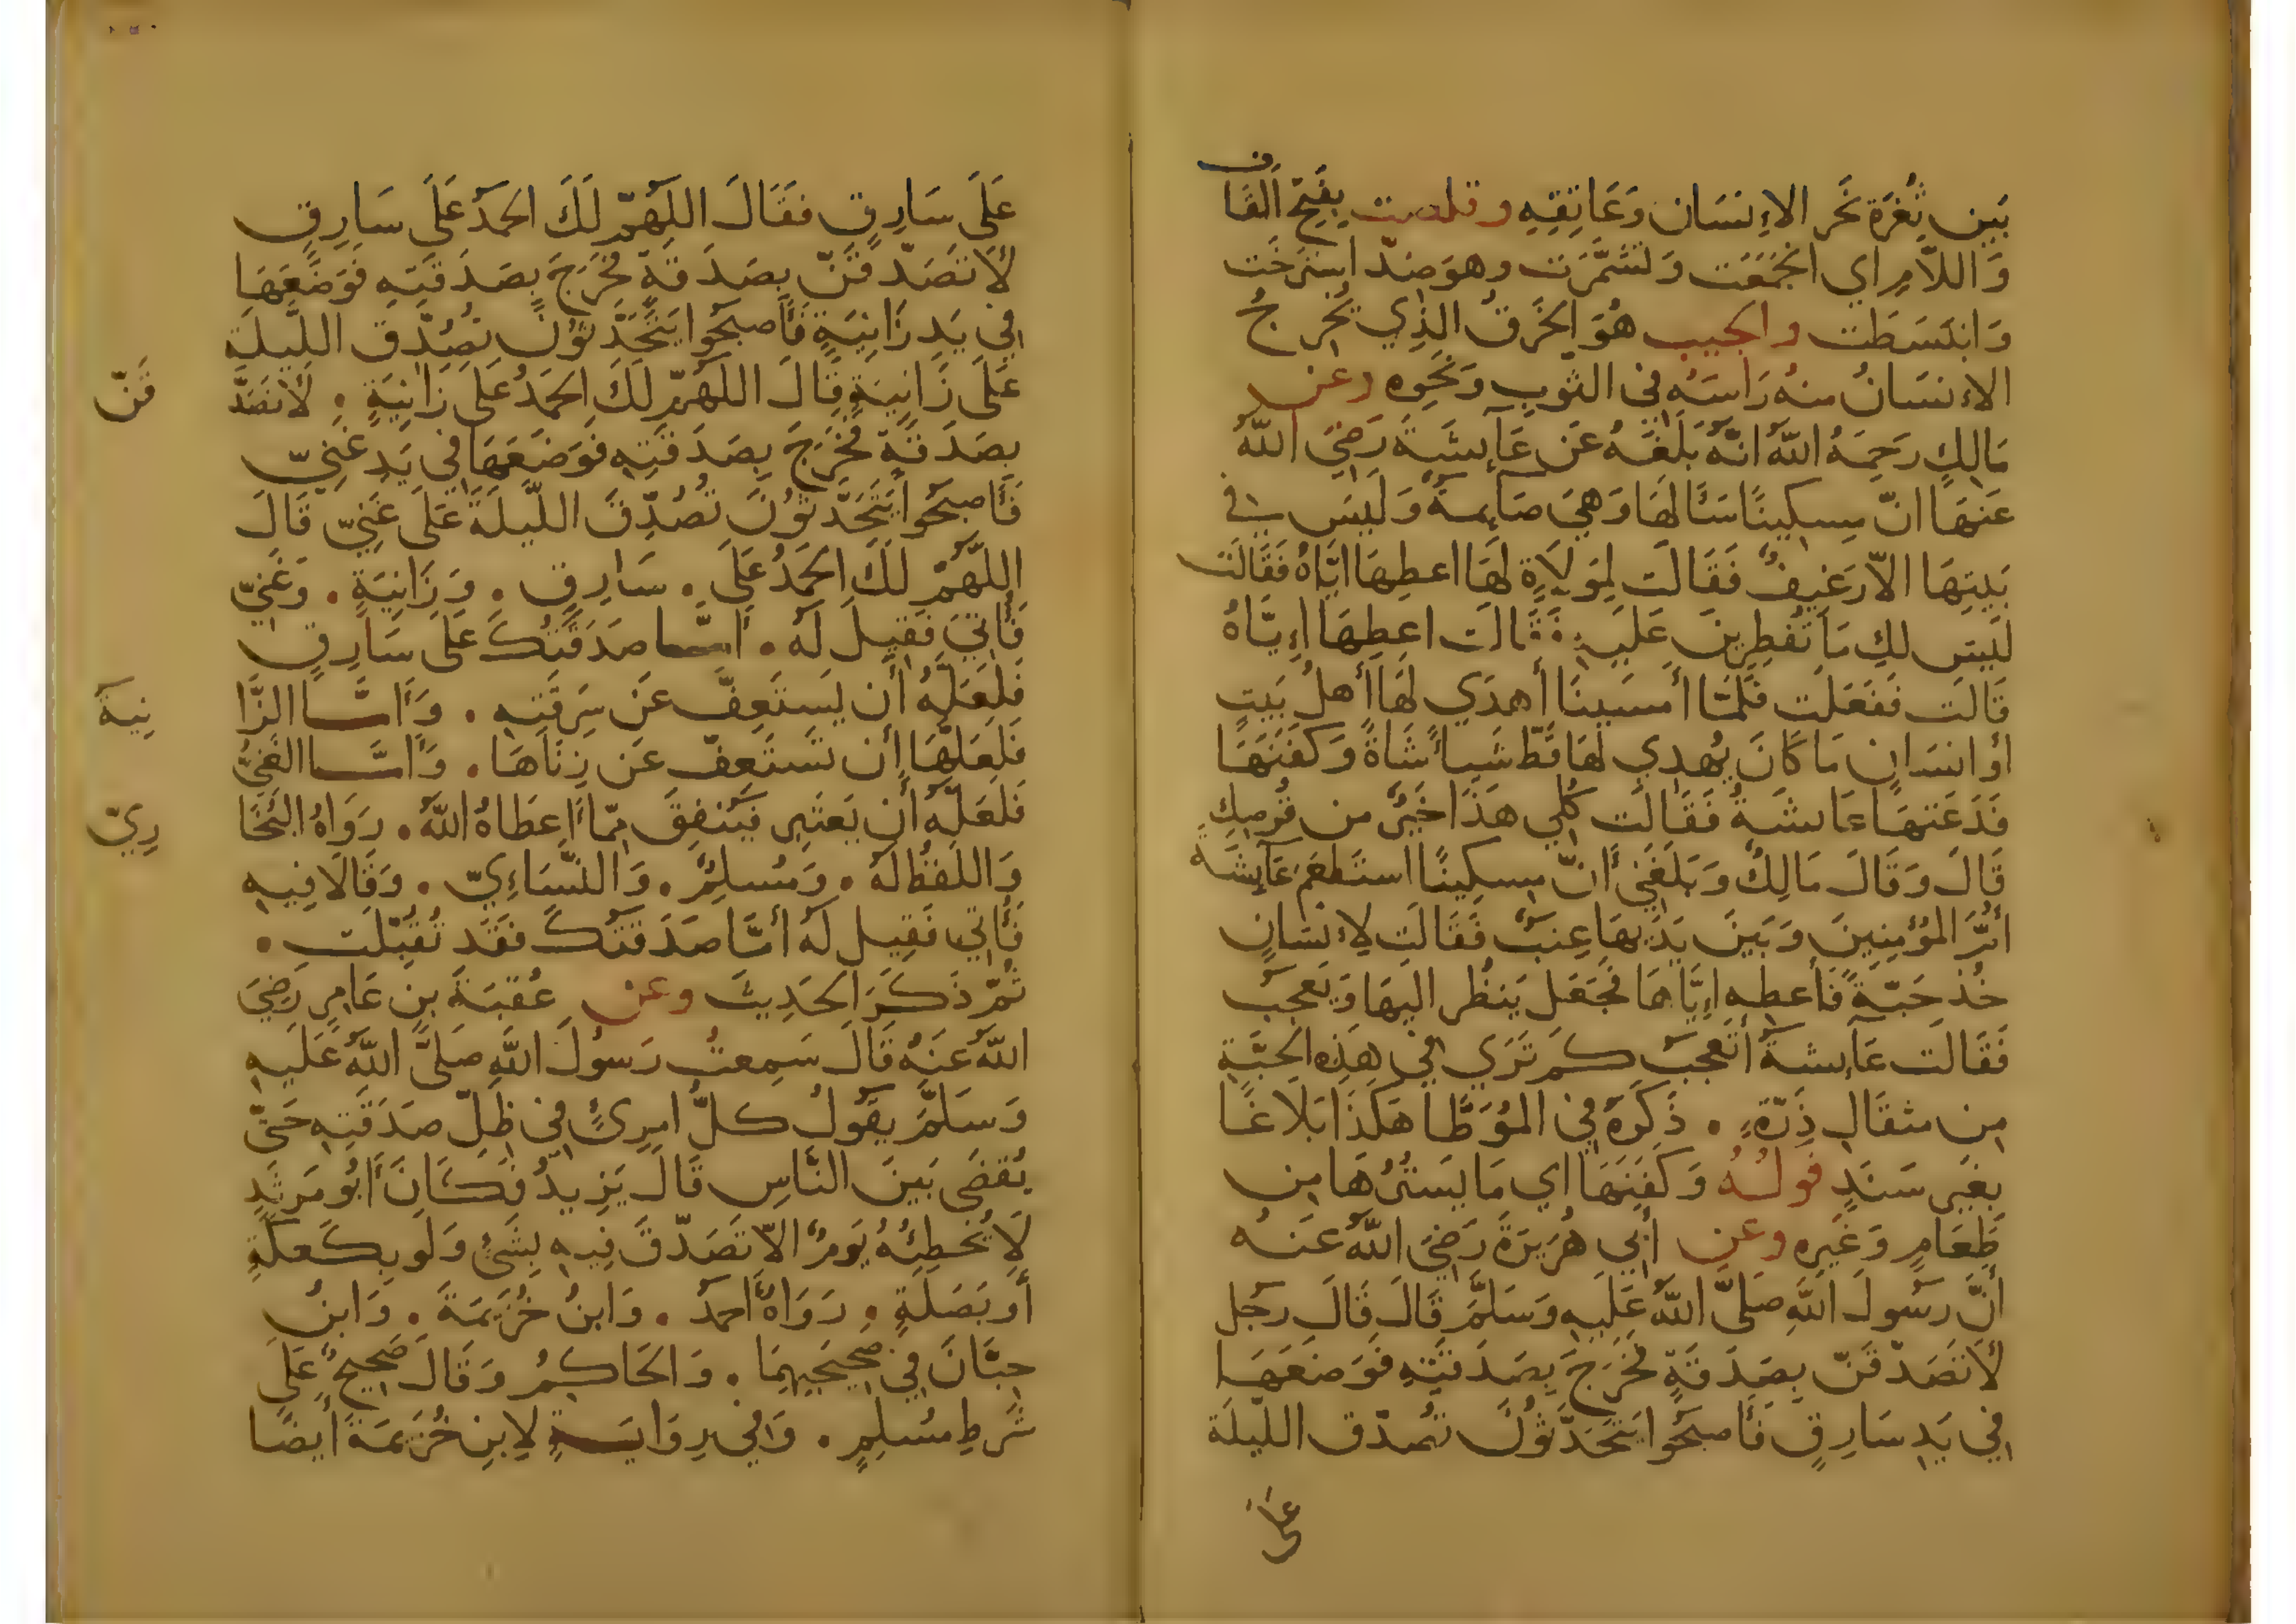 بَين ثُغرَة نَحر الاِنسَان وَعَاتِقِهِ وقلصت بِفَتحِ القَاف
وَاللَّامِ اي انجَمَعَت وَتشَمَّرَت وهوَ ضِدّ استَرخَت
وَانبَسَطَت والجيب هُوَ الخَرقُ الذِي يُخرِجُ
الاِنسَانُ مِنهُ رَاسَهُ فِي الثوبِ وَنَحوِه وعن
مَالِكٍ رَحِمَهُ اللهُ انَّهُ بَلَغَهُ عَن عَآئِشَةَ رَضِيَ اللهُ
عَنهَا انّ مِسكِينًا سَئَالَهَا وَهِيَ صَآئِمَةٌ وَلَيسَ في
بَيتِهَا الاّ رَغِيفٌ فَقَالَت لِمَولَاةٍ لَهَا اعطِهَا ايَّاهُ فَقَالَت
لَيسَ لكِ مَا تُفطِرِينَ عَلَيهِ فَقَالَت اعطِهَا اِيَّاهُ
قَالَت فَفَعَلَت فَلَمَّا أمسَينَا أَهدَي لَهَا أَهلُ بَيتٍ
أو انسَانٍ مَا كَانَ يُهدِي لهَا قَطّ شَيأً شَاةً وَكَفَنَهَا
فَدَعَتهَا عَايشَةُ فَقَالَت كُلِي هذَا خَيرٌ من قُرصِكِ
قَالَ وَقَالَ مَالِكٌ وَبَلَغَنِي أَنّ مِسكِينًا استَطعَم عَآئِشَة
أُمَّ المُؤمِنِينَ وَبَينَ يَدَيهَا عِنَبٌ فَقَالَت لِاِنسَانٍ
خُذ حَبَّةً فَأَعطِهِ اِيَّاهَا فَجَعَل يَنظُر اليهَا وَيَعجَبُ
فَقَالَت عَآئِشةُ أَتَعجَبُ كَم تَرَي في هذِهِ الحَبَّةِ
مِن مثقَالِ ذَرَّةٍ . ذَكَرَهُ فِي المُوَطَّا هَكَذَا بَلَاغًا
بِغَيرِ سَنَدٍ قولُهُ وَكَفَنَهَا اي مَا يَستُرُهَا مِن
طَعَامٍ وَغَيرِه وعن أَبِي هُرَيرَةَ رَضِيَ اللهُ عَنهُ
أنَّ رسُولَ اللهِ صَلىَّ اللهُ عَلَيهِ وَسَلَّمَ قَالَ قَالَ رجُل
لَاتَصَدّقَنّ بِصَدَقَةٍ فَخَرَجَ بِصَدَقَتِهِ فَوَضَعَهَا
فِي يَدِ سَارِقٍ فَأَصبَحُوا يَتَحَدَّثُونَ تصُدّق اللّيلَة
على
عَلَى سَارِقٍ فَقَالَ اللهُمّ لَكَ الحَمدُ عَلَي سَارِقٍ
لَاتَصَدّقَنّ بِصَدَقَةٍ فَخَرَجَ بِصَدَقَتِهِ فَوَضَعَهَا
فِي يَدِ زَانِيَةٍ فَأَصبَحُوا يَتَحَدَّثُونَ تُصُدِّق اللَّيلَةَ
عَلَى زَانِيَةٍ قَالَ اللَّهُمّ لَكَ الحَمدُ عَلَى زَانِيَةٍ . لَاتصَدَّقَنّ
بِصَدَقَةٍ فَخَرَجَ بِصَدَقَتِهِ فَوَضَعَهَا فِي يَدِ غَنِيّ
فَأَصبَحُوا يَتَحَدَّثُونَ تُصُدِّقَ اللَّيلَةَ عَلَى غَنِيّ قَالَ
اللَّهُمّ لَكَ الحَمدُ عَلَي . سَارِقٍ . وَزَانِيَةٍ . وَغَنِيّ
فَأُتِيَ فَقِيلَ لَهُ . امّا صَدَقَتُكَ عَلَى سَارِقٍ
فَلَعَلّهُ أَن يَستَعِفَّ عَن سَرِقَتِهِ . وَأَمَّا الزَّانِيَة
فَلَعَلّهَا أَن تَستَعِفّ عَن زِنَاهَا . وَأَمَّا الغَنِيُّ
فَلَعَلّهُ أَن يَعتَبِر فَيُنفِقَ مِمّا اَعطَاهُ اللهُ . رَوَاهُ البُخَارِيّ
وَاللفظُ لهُ . وَمُسلِمٌ . وَالنَّسَاءِيّ . وَقَالَا فِيهِ
فَأُتِي فَقِيل لَهُ أمَّا صَدَقَتكَ فقَد تُقُبِّلَت .
ثُمّ ذَكَرَ الحَدِيثَ وعن عُقبَةَ بنِ عَامِرٍ رَضِيَ
اللهُ عَنهُ قَالَ سَمِعتُ رَسُولَ اللهِ صَلىَّ اللهُ عَلَيهِ
وَسَلَّمَ يقُولُ كلُّ امرِئٍ فِي ظِلّ صَدَقَتِهِ حَتَّى
يُقضَي بَينَ النَّاسِ قَالَ يَزِيدُ فَكَانَ أَبُو مَرثَدٍ
لَا يُخطِئُهُ يَومٌ الاّ تَصَدّقَ فِيهِ بِشَيءٍ وَلَو بِكَعكَةٍ
أَو بَصَلَةٍ . رَوَاهُ أَحمدُ . وَابنُ خُزَيمَةَ . وَابنُ
حِبَّانَ فِي صَحِيحَيهِمَا . وَالحَاكِمُ وَقَالَ صَحِيحٌ عَلَى
شَرطِ مُسلِمٍ . وَفي رِوَايَةٍ لِابنِ خُزَيمَةَ أَيضًا